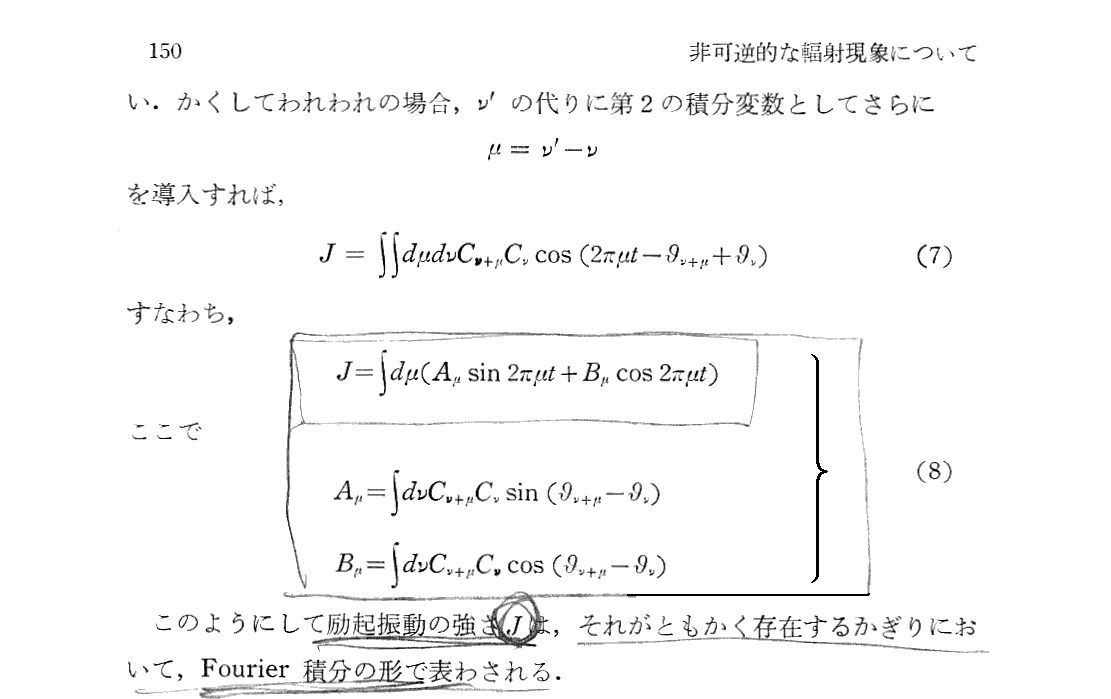 150 非可逆的な輻射現象について
い．かくしてわれわれの場合，ν′ の代りに第2の積分変数としてさらに
μ = ν′−ν
を導入すれば，
J = ∬dμdνC_{ν+μ}C_ν cos (2πμt−ϑ_{ν+μ}+ϑ_ν) (7)
すなわち，
J=∫dμ(A_μ sin 2πμt+B_μ cos 2πμt)
ここで
(8)
A_μ=∫dνC_{ν+μ}C_ν sin (ϑ_{ν+μ}−ϑ_ν)
B_μ=∫dνC_{ν+μ}C_ν cos (ϑ_{ν+μ}−ϑ_ν)
このようにして励起振動の強さ J は，それがともかく存在するかぎりにお
いて，Fourier 積分の形で表わされる．